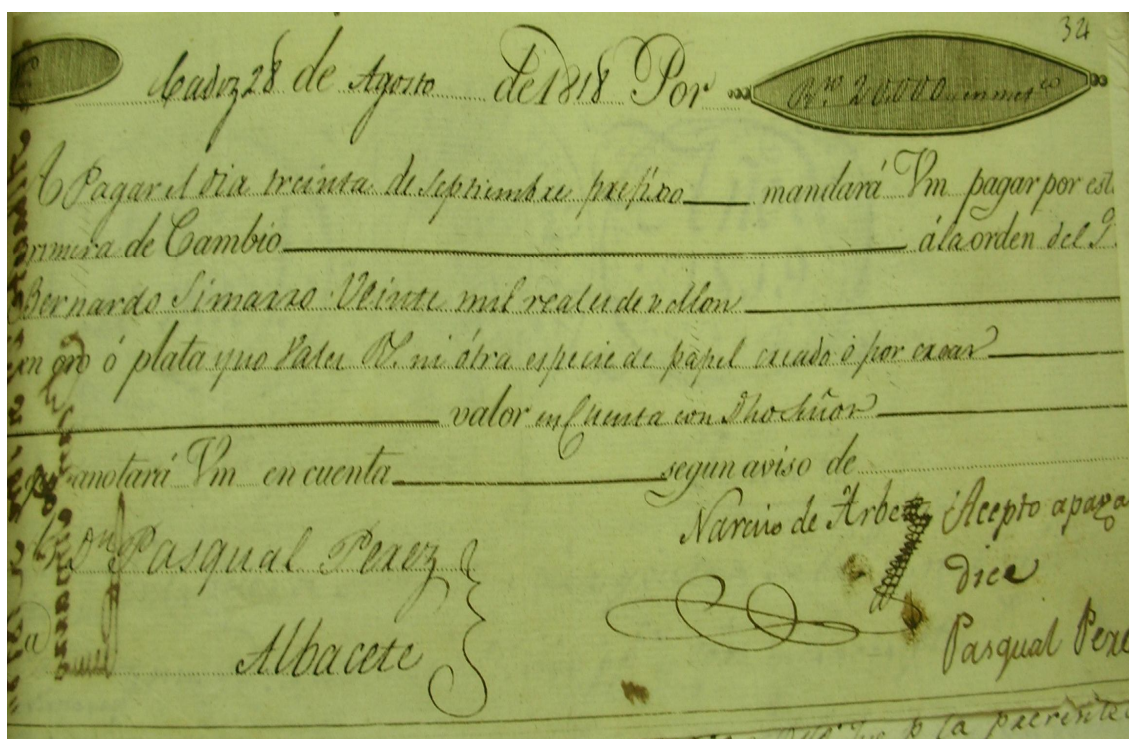 34
Cadiz 28 de Agosto de 1818 Por Rs. vn. 20.000 en met.co
A Pagar el dia treinta de septiembre prefixo mandará Vm pagar por est
rimera de Cambio á la orden del S.
Bernardo Simarro Veinte mil reales de vellon
en oro ó plata y no Vales R. ni ótra especie de papel creado ó por crear
valor en Cuenta con Dho Señor
que anotará Vm en cuenta segun aviso de
Narciso de Arbe Acepto a pagar
A Dn Pasqual Perez dice
Albacete Pasqual Pere
la presente